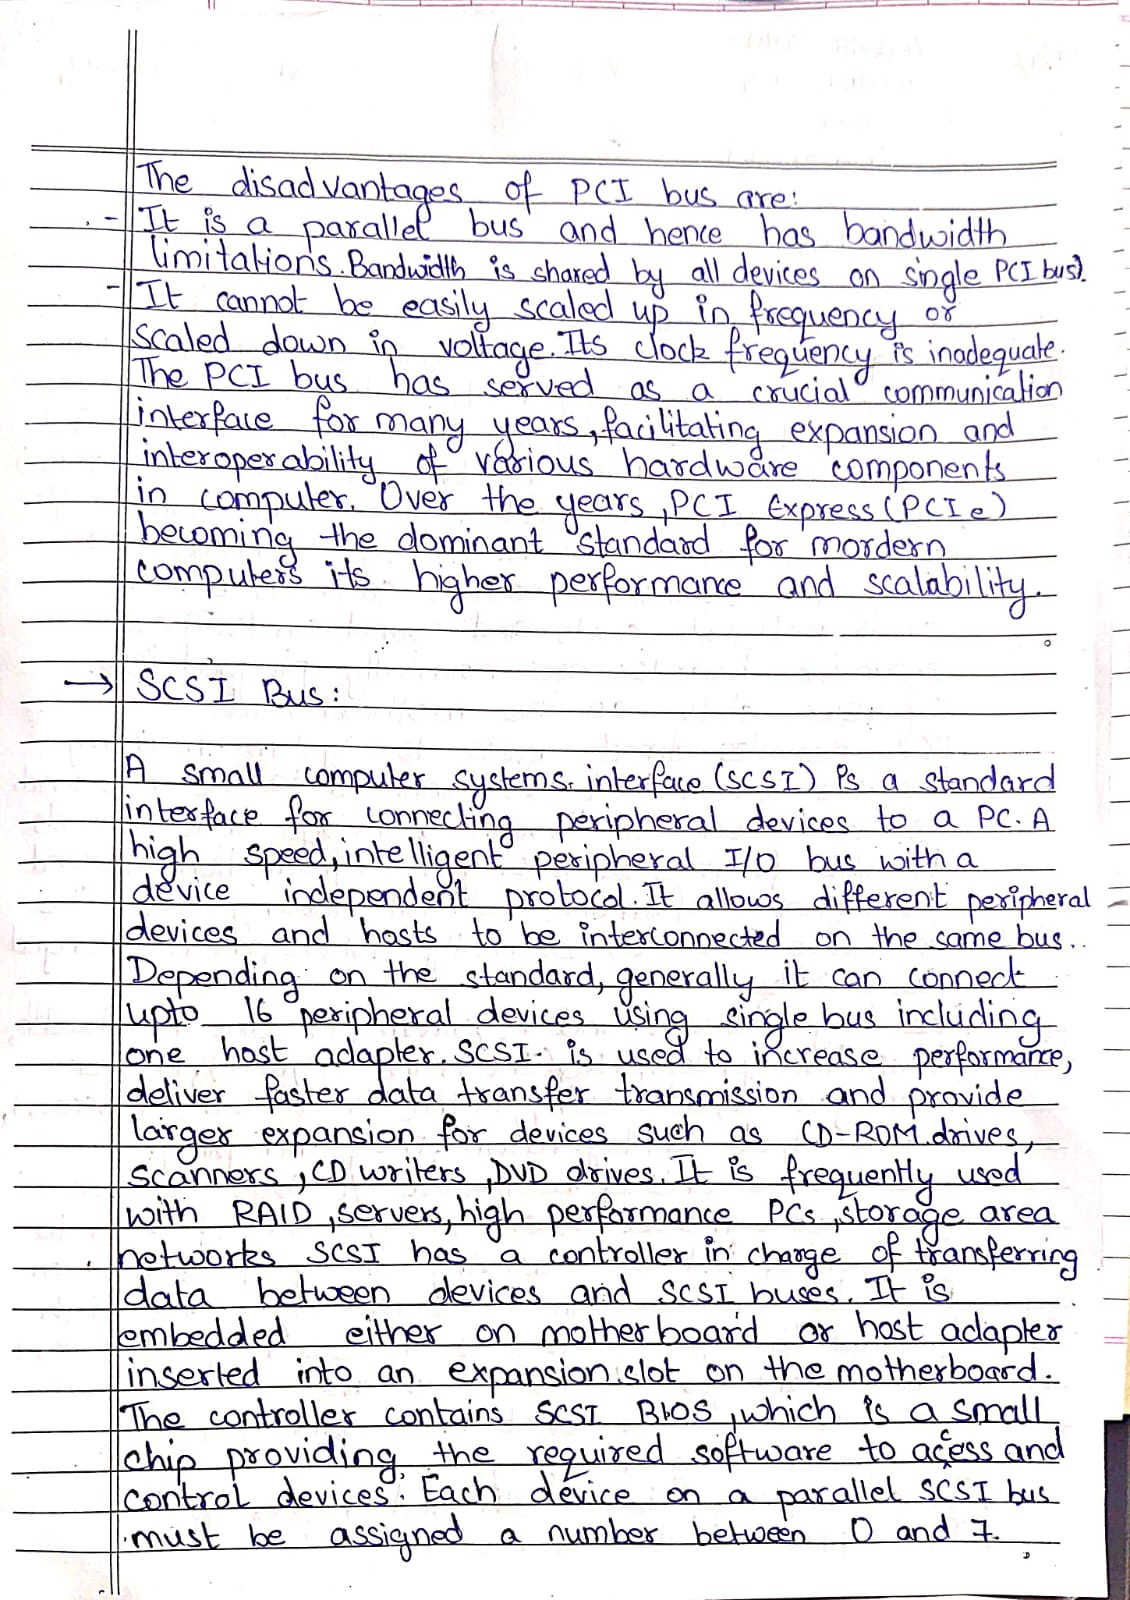 The disadvantages of PCI bus are:
- It is a parallel bus and hence has bandwidth
limitations. Bandwidth is shared by all devices on single PCI bus).
- It cannot be easily scaled up in frequency or
scaled down in voltage. Its clock frequency is inadequate.
The PCI bus has served as a crucial communication
interface for many years, facilitating expansion and
interoperability of various hardware components
in computer. Over the years, PCI Express (PCIe)
becoming the dominant standard for mordern
computers its higher performance and scalability.
→ SCSI Bus:
A small computer systems interface (SCSI) is a standard
interface for connecting peripheral devices to a PC. A
high speed, intelligent peripheral I/O bus with a
device independent protocol. It allows different peripheral
devices and hosts to be interconnected on the same bus..
Depending on the standard, generally it can connect
upto 16 peripheral devices using single bus including
one host adapter. SCSI is used to increase performance,
deliver faster data transfer transmission and provide
larger expansion for devices such as CD-ROM drives,
scanners, CD writers, DVD drives. It is frequently used
with RAID, servers, high performance PCs, storage area
networks SCSI has a controller in charge of transferring
data between devices and SCSI buses. It is
embedded either on motherboard or host adapter
inserted into an expansion slot on the motherboard.
The controller contains SCSI BIOS, which is a small
chip providing the required software to acess and
control devices. Each device on a parallel SCSI bus
must be assigned a number between 0 and 7.